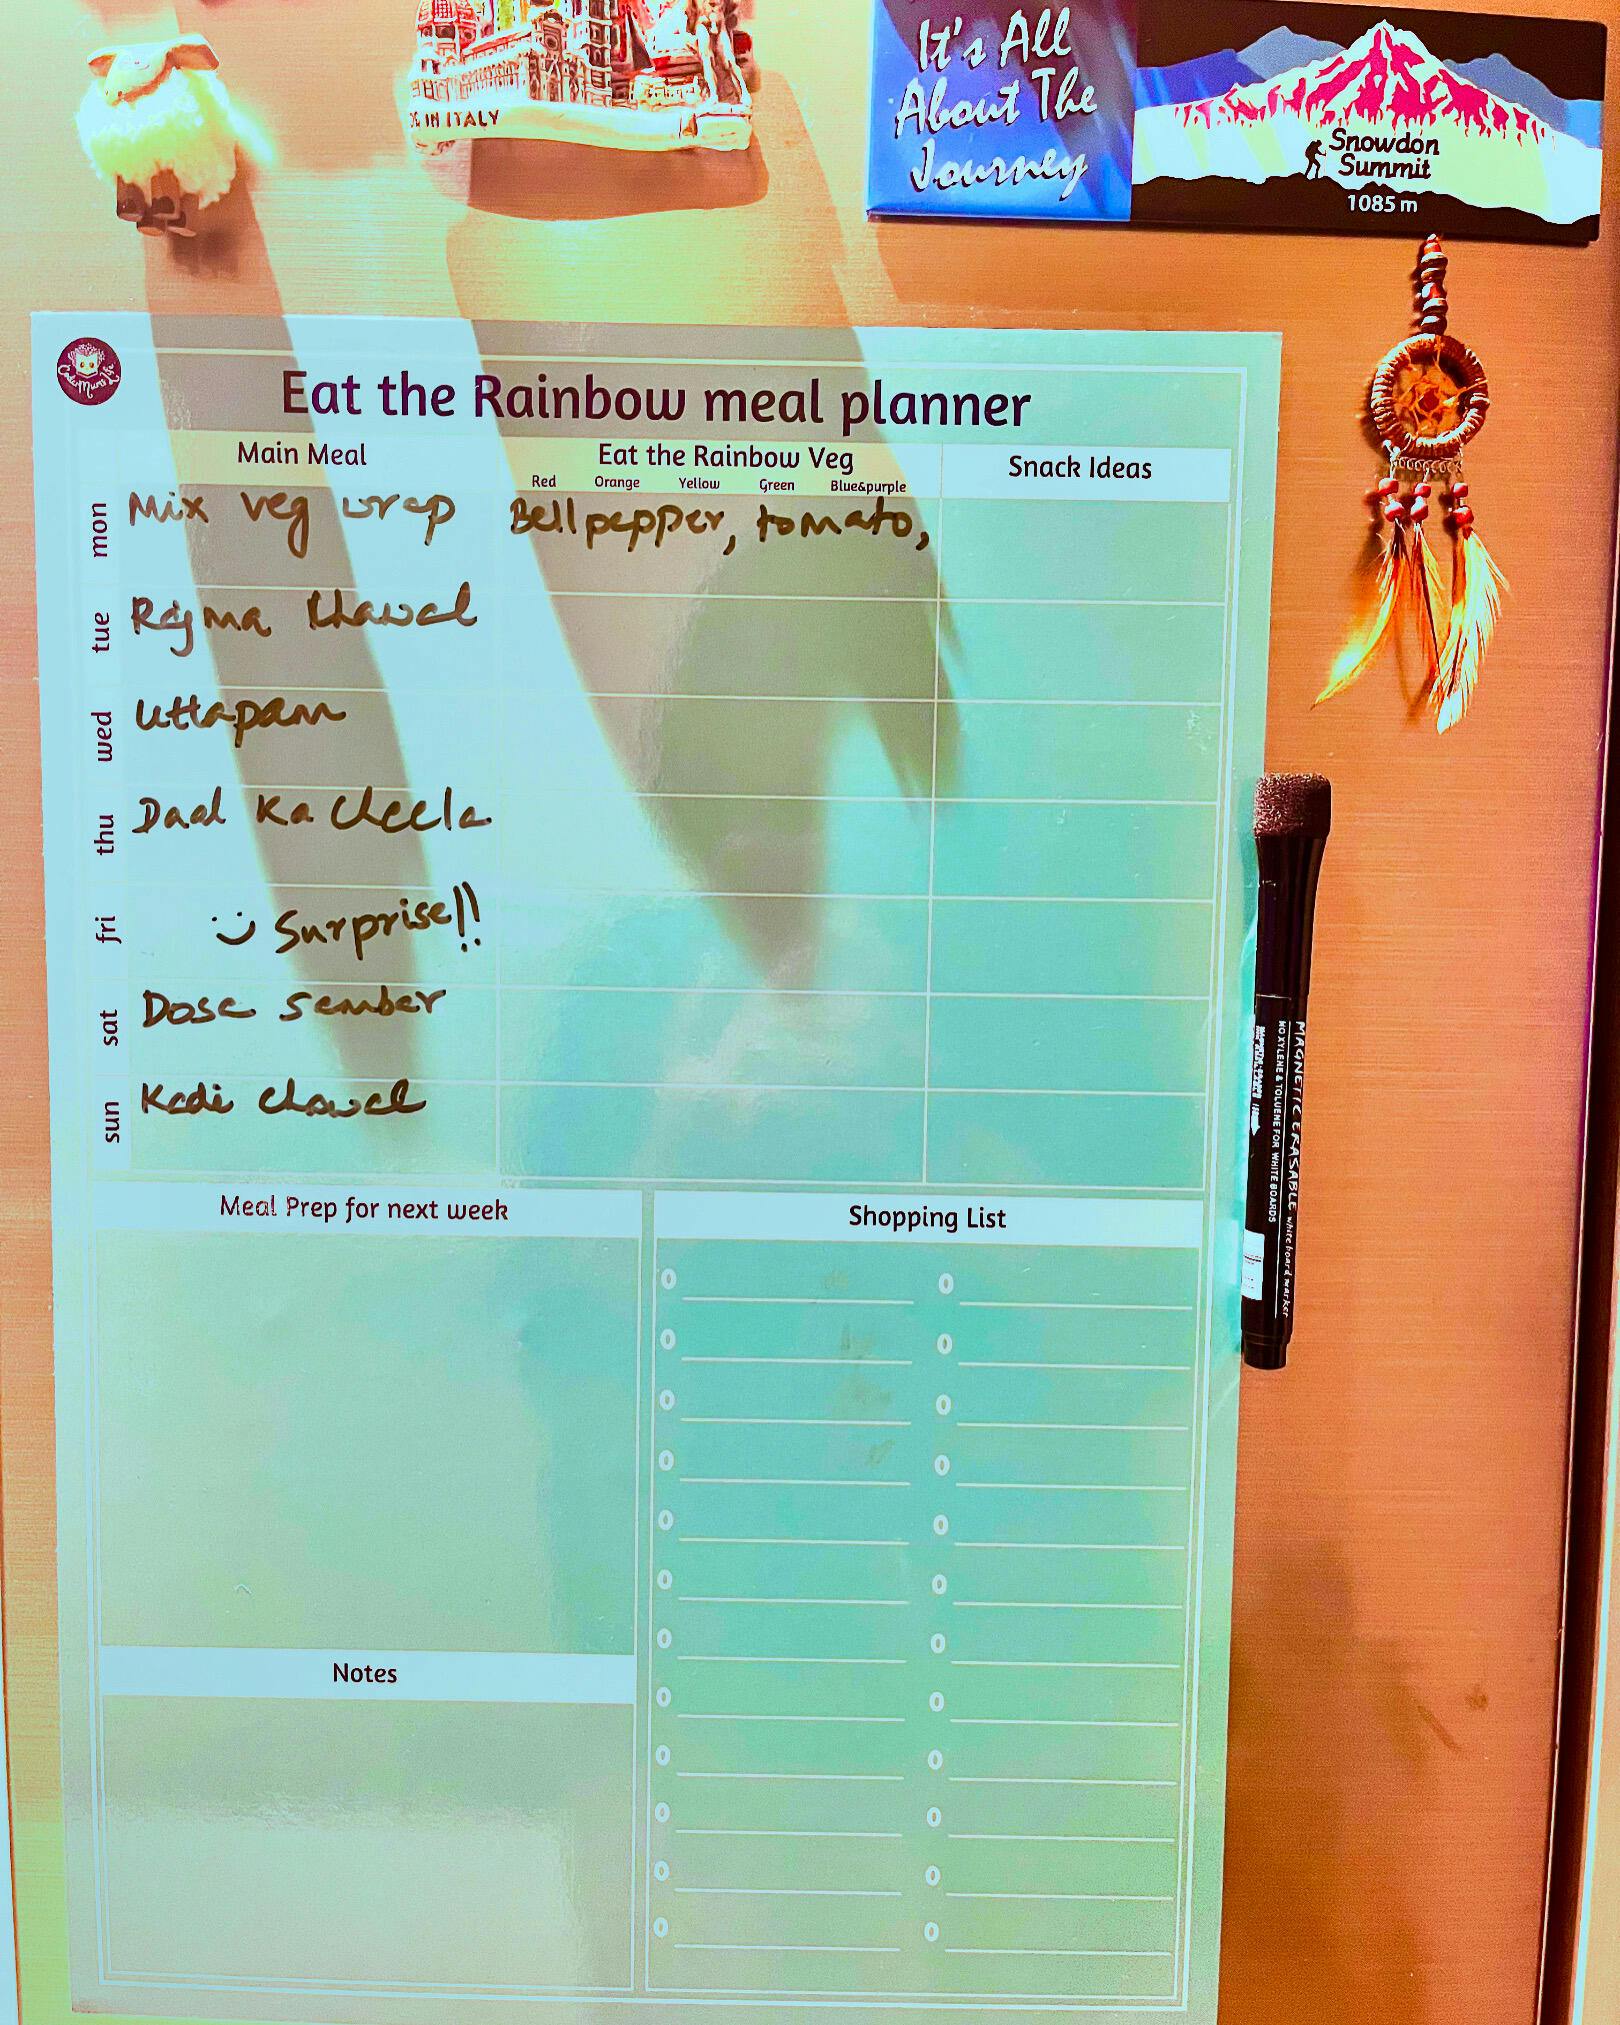 It's All
About The
Journey
Snowdon
Summit
1085 m
IN ITALY
Coder Mums Life
Eat the Rainbow meal planner
Main Meal
Eat the Rainbow Veg
Snack Ideas
Red Orange Yellow Green Blue&purple
mon Mix veg wrap Bellpepper, tomato,
tue Rajma Chawal
wed Uttapam
thu Daal Ka Cheela
fri Surprise!!
sat Dosa Sambar
sun Kadi Chawal
Meal Prep for next week
Shopping List
Notes
MAGNETIC ERASABLE whiteboard marker
NO XYLENE & TOLUENE FOR WHITE BOARDS